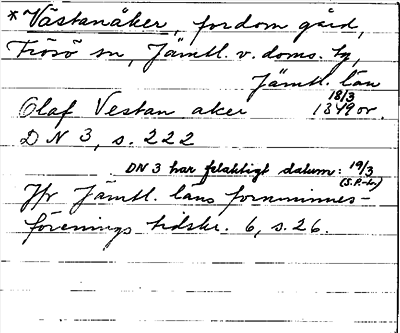 *Västanåker, fordom gård,
Frösö sn, Jämtl. v. doms. tg,
Jämtl. län
18/3
Olaf Vestan aker 1349 or.
DN 3, s. 222
DN 3 har felaktigt datum: 19/3
(S.P-tr)
Jfr Jämtl. läns fornminnes-
förenings tidskr. 6, s. 26.